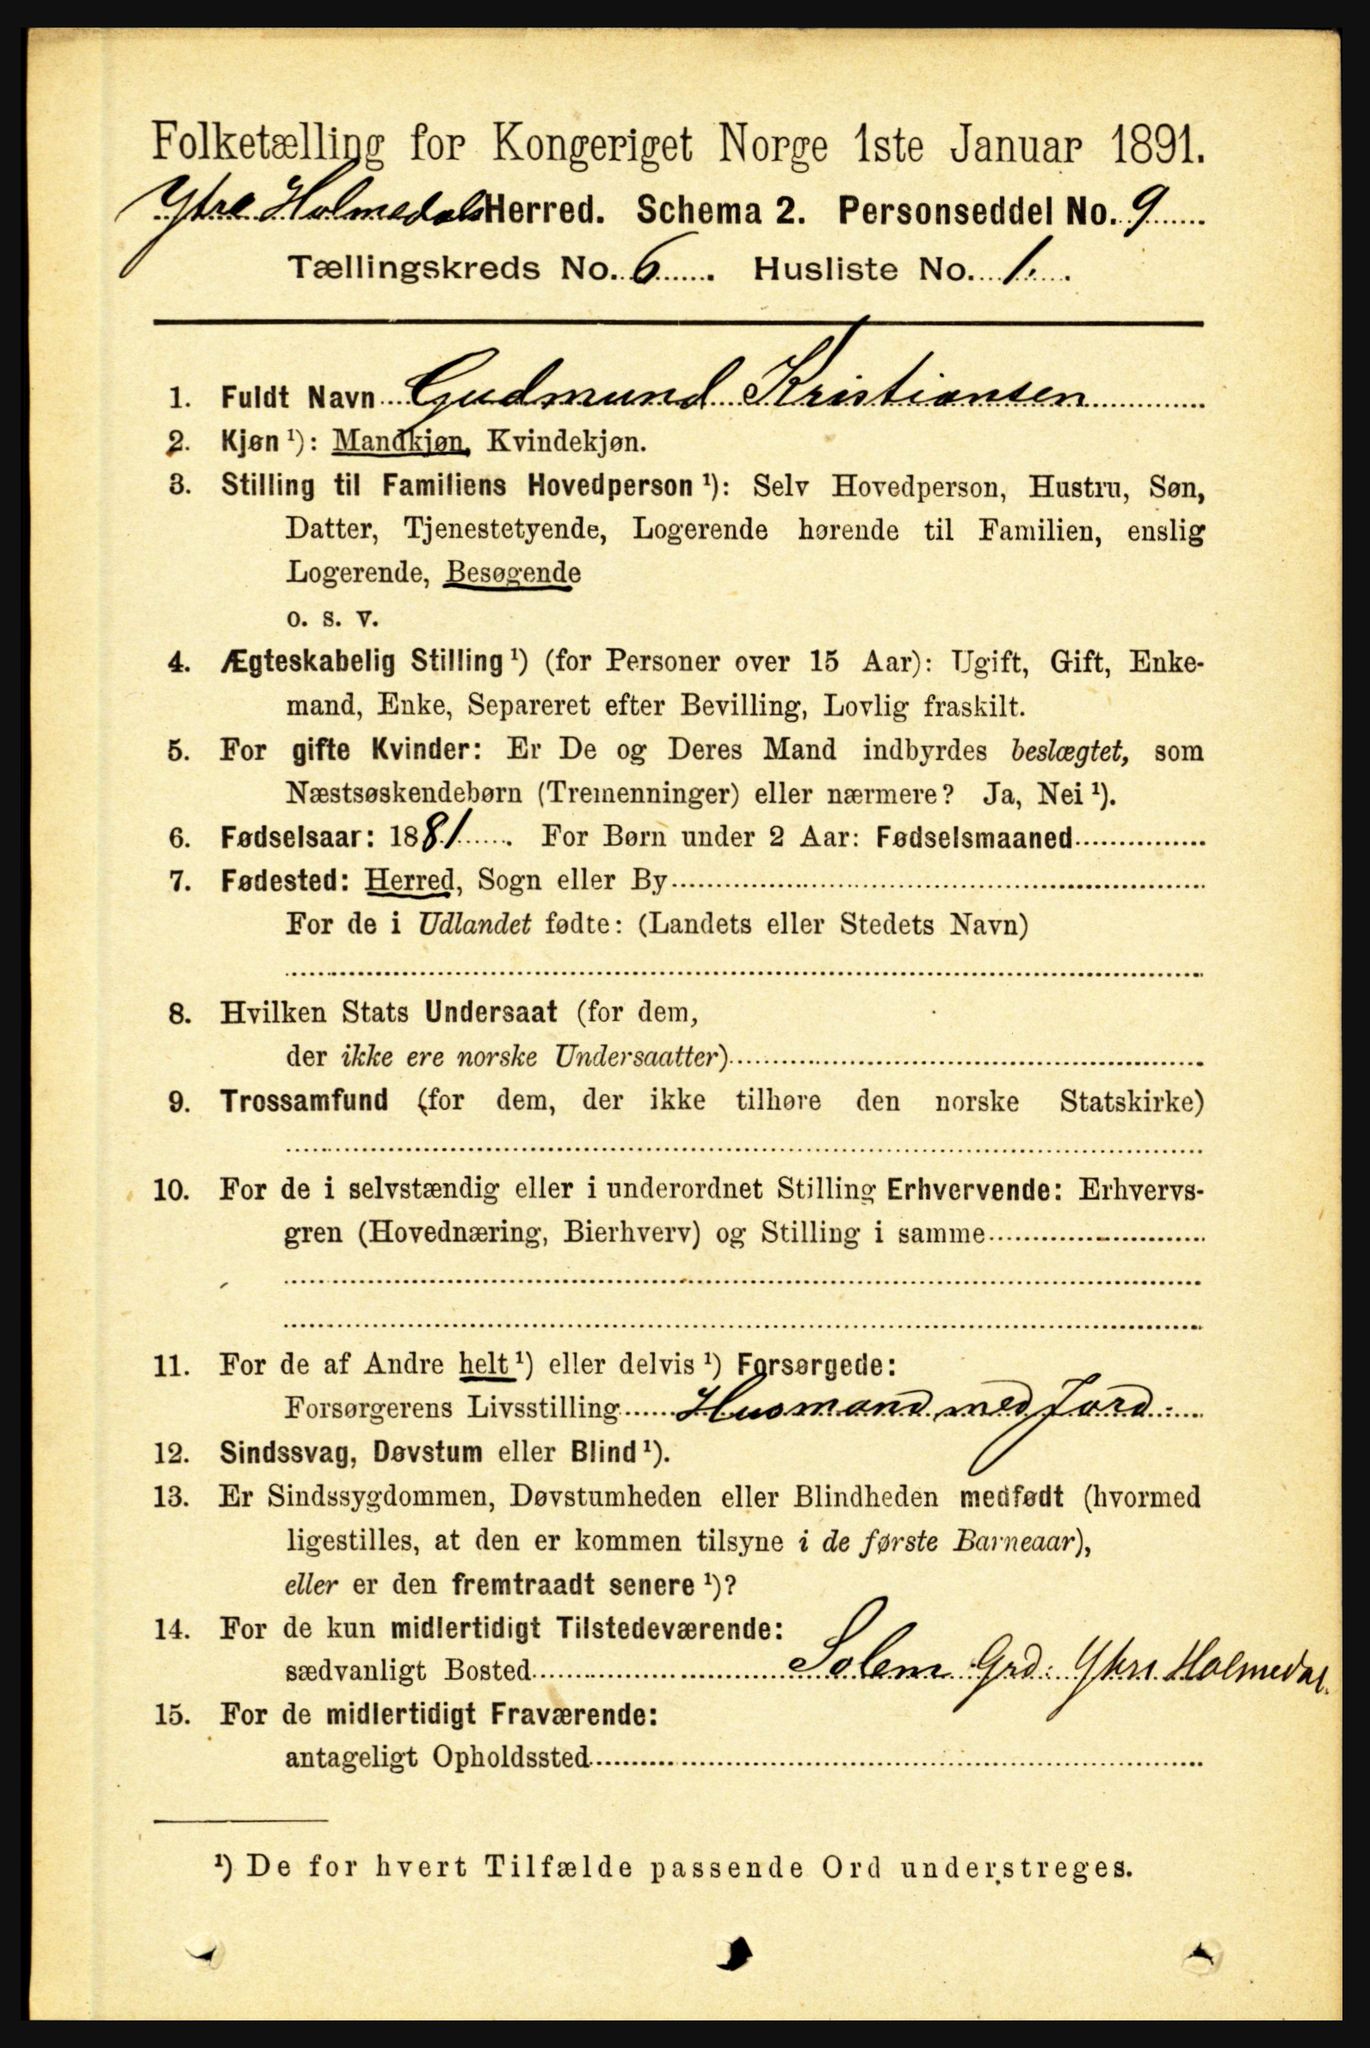 Folketælling for Kongeriget Norge 1ste Januar 1891.
Ytre Holmedals Herred. Schema 2. Personseddel No. 9
Tællingskreds No. 6. Husliste No. 1.
1. Fuldt Navn Gudmund Kristiansen
2. Kjøn ¹): Mandkjøn, Kvindekjøn.
3. Stilling til Familiens Hovedperson ¹): Selv Hovedperson, Hustru, Søn,
Datter, Tjenestetyende, Logerende hørende til Familien, enslig
Logerende, Besøgende
o. s. v.
4. Ægteskabelig Stilling ¹) (for Personer over 15 Aar): Ugift, Gift, Enke-
mand, Enke, Separeret efter Bevilling, Lovlig fraskilt.
5. For gifte Kvinder: Er De og Deres Mand indbyrdes beslægtet, som
Næstsøskendebørn (Tremenninger) eller nærmere? Ja, Nei ¹).
6. Fødselsaar: 1881. For Børn under 2 Aar: Fødselsmaaned
7. Fødested: Herred, Sogn eller By
For de i Udlandet fødte: (Landets eller Stedets Navn)
8. Hvilken Stats Undersaat (for dem,
der ikke ere norske Undersaatter)
9. Trossamfund (for dem, der ikke tilhøre den norske Statskirke)
10. For de i selvstændig eller i underordnet Stilling Erhvervende: Erhvervs-
gren (Hovednæring, Bierhverv) og Stilling i samme
11. For de af Andre helt ¹) eller delvis ¹) Forsørgede:
Forsørgerens Livsstilling Husmand med Jord
12. Sindssvag, Døvstum eller Blind ¹).
13. Er Sindssygdommen, Døvstumheden eller Blindheden medfødt (hvormed
ligestilles, at den er kommen tilsyne i de første Barneaar),
eller er den fremtraadt senere ¹)?
14. For de kun midlertidigt Tilstedeværende:
sædvanligt Bosted Solem Grd. Ytre Holmedal.
15. For de midlertidigt Fraværende:
antageligt Opholdssted
¹) De for hvert Tilfælde passende Ord understreges.